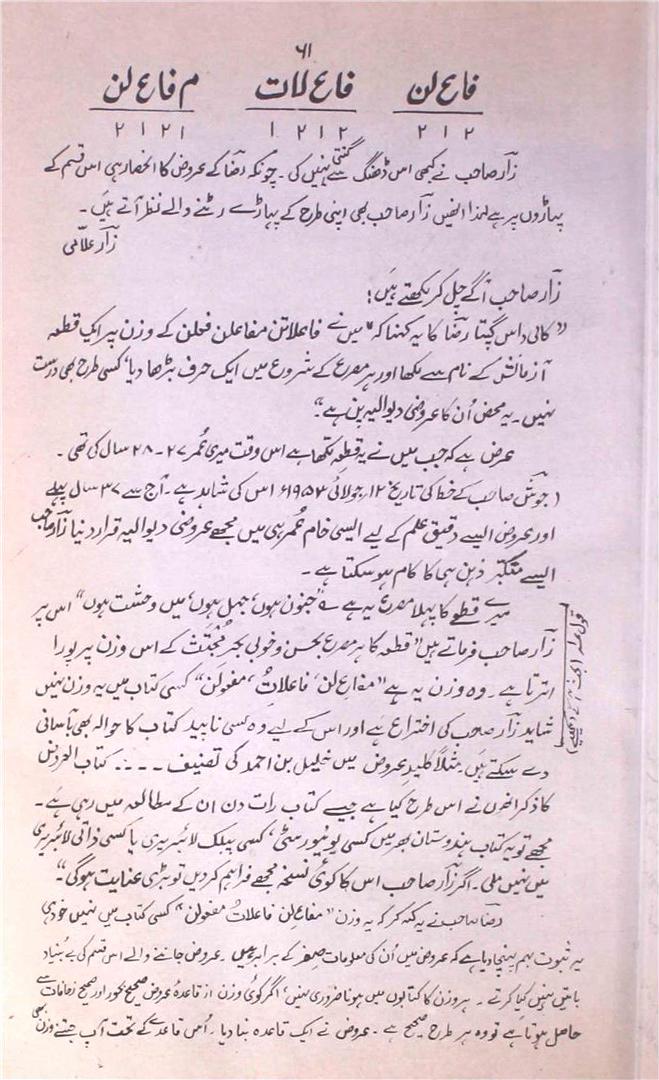 ۶۱
فاع لن   فاع لات   م فاع لن
۲ ۱ ۲   ۲ ۱ ۲ ۱   ۱ ۲ ۱ ۲
زارؔ صاحب نے کبھی اس ڈھنگ سے گنتی نہیں کی۔ چونکہ رضاؔ کے عروض کا انحصار ہی اس قسم کے
پہاڑوں پر ہے لہٰذا انھیں زارؔ صاحب بھی اپنی طرح کے پہاڑے رٹنے والے نظر آتے ہیں۔
زارؔ علامی
زارؔ صاحب آگے چل کر لکھتے ہیں؛
"کالی داس گپتا رضاؔ کا یہ کہنا کہ "میں نے فاعلاتن مفاعلن فعلن کے وزن پر ایک قطعہ
آزمائش کے نام سے لکھا اور ہر مصرع کے شروع میں ایک حرف بڑھا دیا، کسی طرح بھی درست
نہیں۔ یہ محض اُن کا عروضی دیوالیہ پن ہے"
عرض ہے کہ جب میں نے یہ قطعہ لکھا ہے اس وقت میری عُمر ۲۷-۲۸ سال کی تھی۔
(جوشؔ صاحب کے خط کی تاریخ ۱۲؍جولائی ۱۹۵۳ء اس کی شاہد ہے۔ آج سے ۳۷ سال پہلے
اور عروض ایسے دقیق علم کے لیے ایسی خام عُمر ہی میں مجھے عروضی دیوالیہ قرار دینا زارؔ صاحب
ایسے متکبّر ذہن ہی کا کام ہو سکتا ہے۔
میرے قطعے کا پہلا مصرع یہ ہے ؎ "جنون ہوں، جہل ہوں، میں وحشت ہوں" اس پر
زارؔ صاحب فرماتے ہیں "قطعہ کا ہر مصرع بحسن و خوبی بحرِ مُجتَث کے اس وزن پر پورا
اترتا ہے۔ وہ وزن یہ ہے "مفاعِ لن، فاعلاتُ، مفعولن" کسی کتاب میں یہ وزن نہیں
شاید زارؔ صاحب کی اختراع ہے اور اس کے لیے وہ کسی ناپید کتاب کا حوالہ بھی بآسانی
دے سکتے ہیں مثلاً کلیدِ عروض میں خلیل بن احمد کی تصنیف ۔۔۔۔ کتاب العروض
کا ذکر انھوں نے اس طرح کیا ہے جیسے کتاب رات دن ان کے مطالعہ میں رہی ہے۔
مجھے تو یہ کتاب ہندوستان بھر میں کسی یونیورسٹی، کسی پبلک لائبریری یا کسی ذاتی لائبریری
میں نہیں ملی۔ اگر زارؔ صاحب اس کا کوئی نسخہ مجھے فراہم کر دیں تو بڑی عنایت ہوگی"۔
رضاؔ صاحب نے یہ کہہ کر کہ یہ وزن "مفاعِ لن فاعلاتُ مفعولن" کسی کتاب میں نہیں خود ہی
یہ ثبوت بہم پہنچا دیا ہے کہ عروض میں اُن کی معلومات صفر کے برابر ہیں۔ عروض جاننے والے اس قسم کی بے بنیاد
باتیں نہیں کیا کرتے۔ ہر وزن کا کتابوں میں ہونا ضروری نہیں، اگر کوئی وزن از قاعدۂ عروض صحیح بحور اور صحیح زحافات سے
حاصل ہوتا ہے تو وہ ہر طرح صحیح ہے۔ عروض نے ایک قاعدہ بنا دیا۔ اُس قاعدے کے تحت آپ جتنے وزن بھی